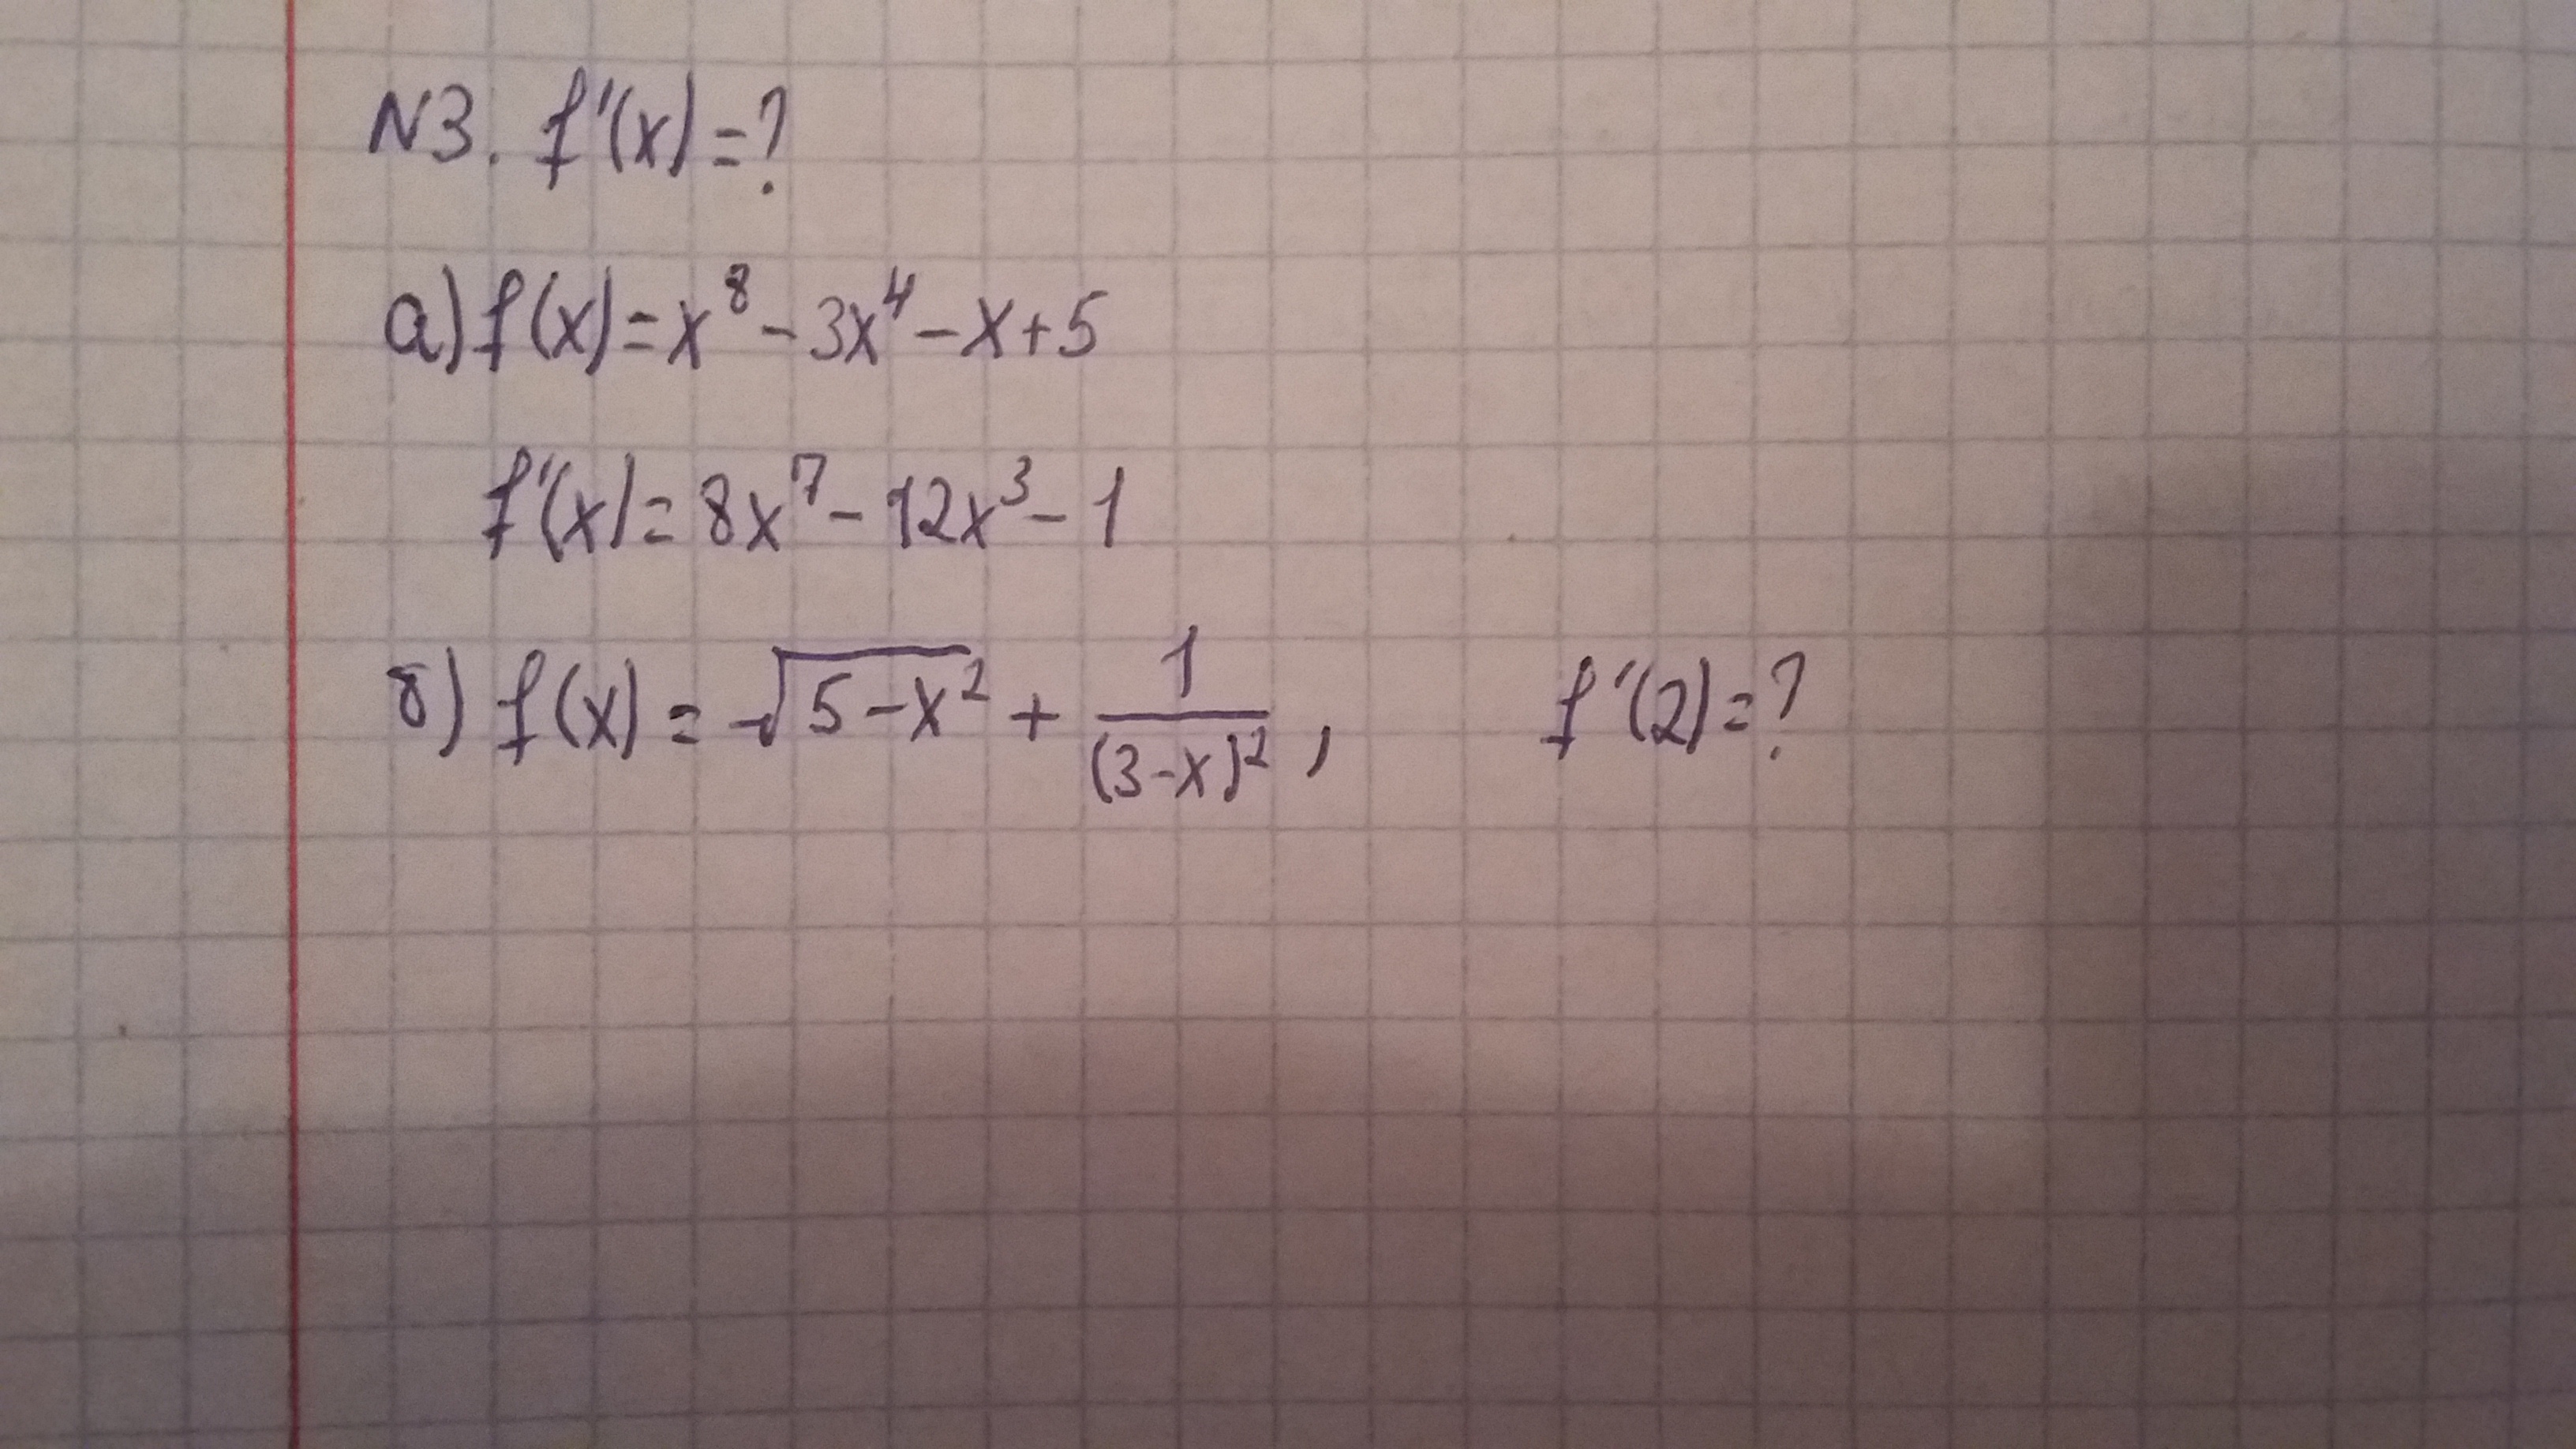 N3. f'(x)=?
а) f(x)=x⁸-3x⁴-x+5
f'(x)=8x⁷-12x³-1
б) f(x)=√(5-x²) + 1/(3-x)², f'(2)=?